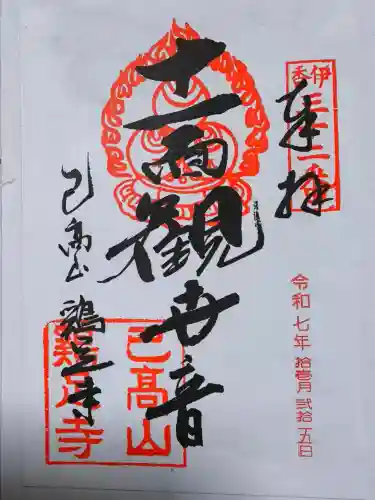 奉拝
伊香三十三番
令和七年拾壱月弐拾五日
十一面觀世音
己高山
鶏足寺
己高山
鶏足寺